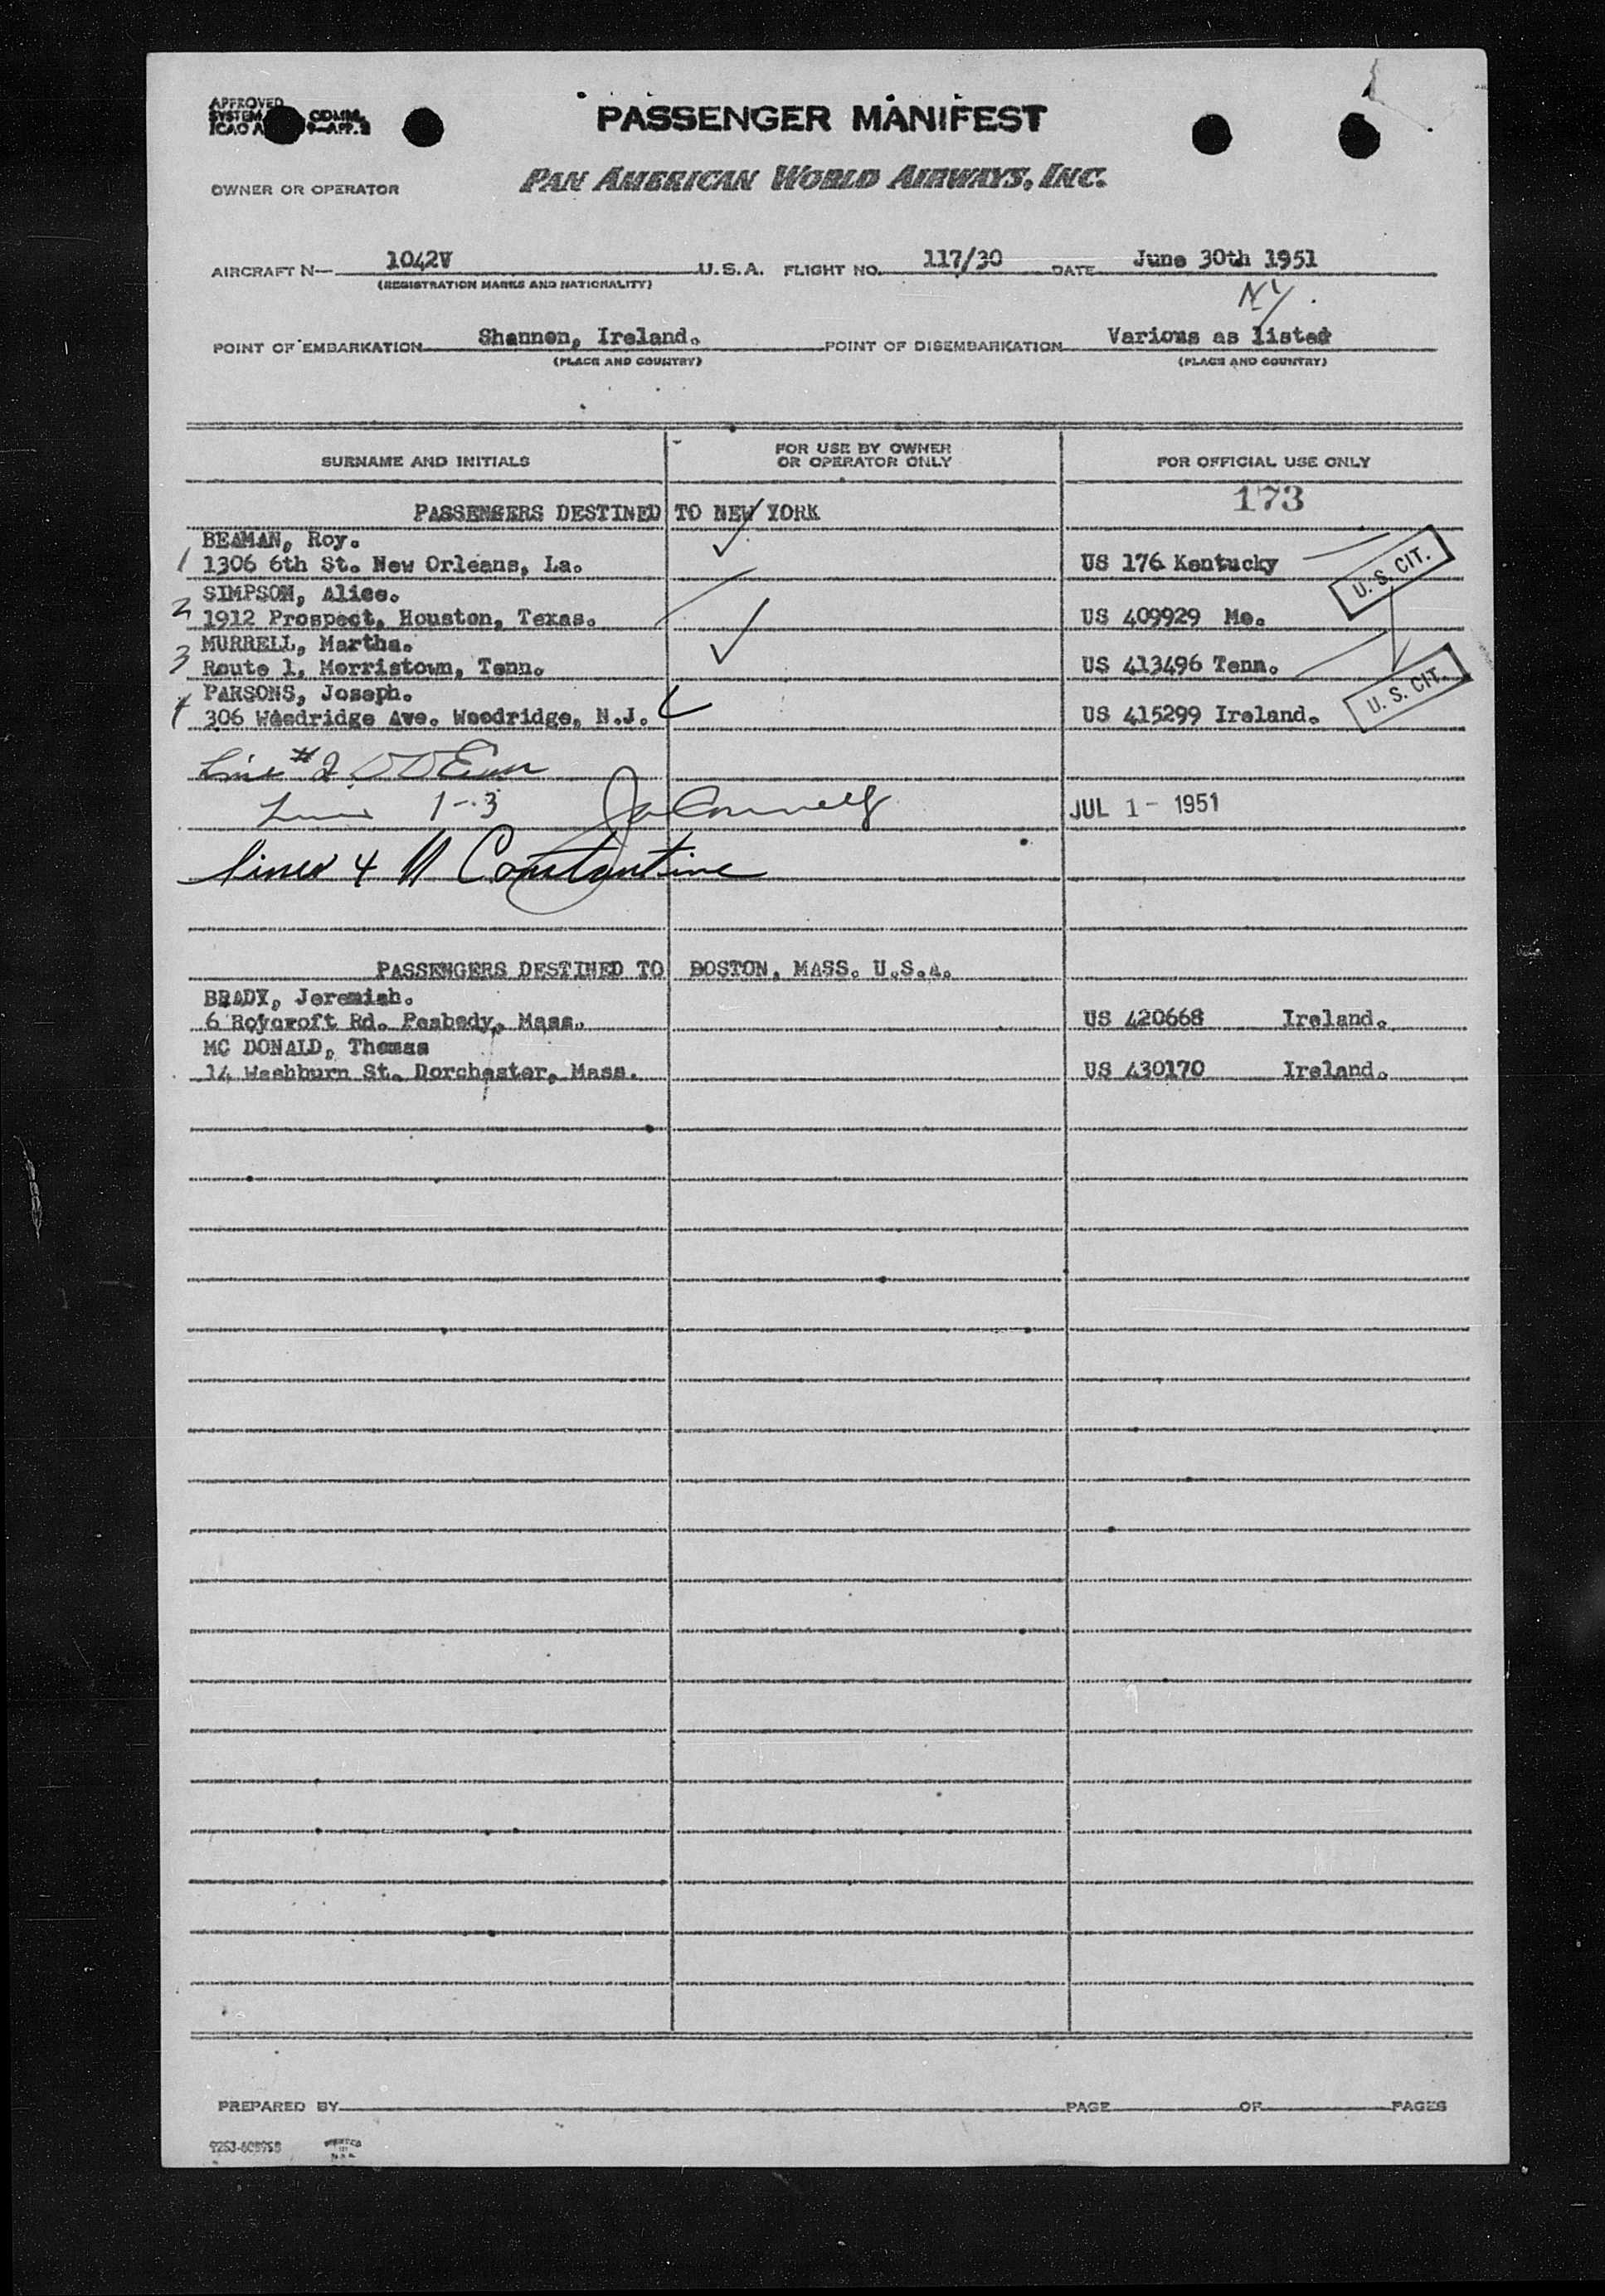 APPROVED
SYSTEM COMM.
ICAO A 9-APP. 3
PASSENGER MANIFEST
OWNER OR OPERATOR PAN AMERICAN WORLD AIRWAYS, INC.
AIRCRAFT N— 1042V U.S.A. FLIGHT NO. 117/30 DATE June 30th 1951
(REGISTRATION MARKS AND NATIONALITY)
NY.
POINT OF EMBARKATION Shannon, Ireland. POINT OF DISEMBARKATION Various as listed
(PLACE AND COUNTRY) (PLACE AND COUNTRY)
SURNAME AND INITIALS FOR USE BY OWNER OR OPERATOR ONLY FOR OFFICIAL USE ONLY
173
PASSENGERS DESTINED TO NEW YORK
BEAMAN, Roy.
1 1306 6th St. New Orleans, La. US 176 Kentucky U. S. CIT.
SIMPSON, Alice.
2 1912 Prospect, Houston, Texas. US 409929 Mo.
MURRELL, Martha.
3 Route 1, Morristown, Tenn. US 413496 Tenn.
PARSONS, Joseph.
4 306 Woodridge Ave. Woodridge, N.J. US 415299 Ireland. U. S. CIT.
Line #2
1-3 JUL 1- 1951
lines 4 Constantine
PASSENGERS DESTINED TO BOSTON, MASS. U.S.A.
BRADY, Jeremiah.
6 Roycroft Rd. Peabody, Mass. US 420668 Ireland.
MC DONALD, Thomas
14 Washburn St. Dorchester, Mass. US 430170 Ireland.
PREPARED BY PAGE OF PAGES